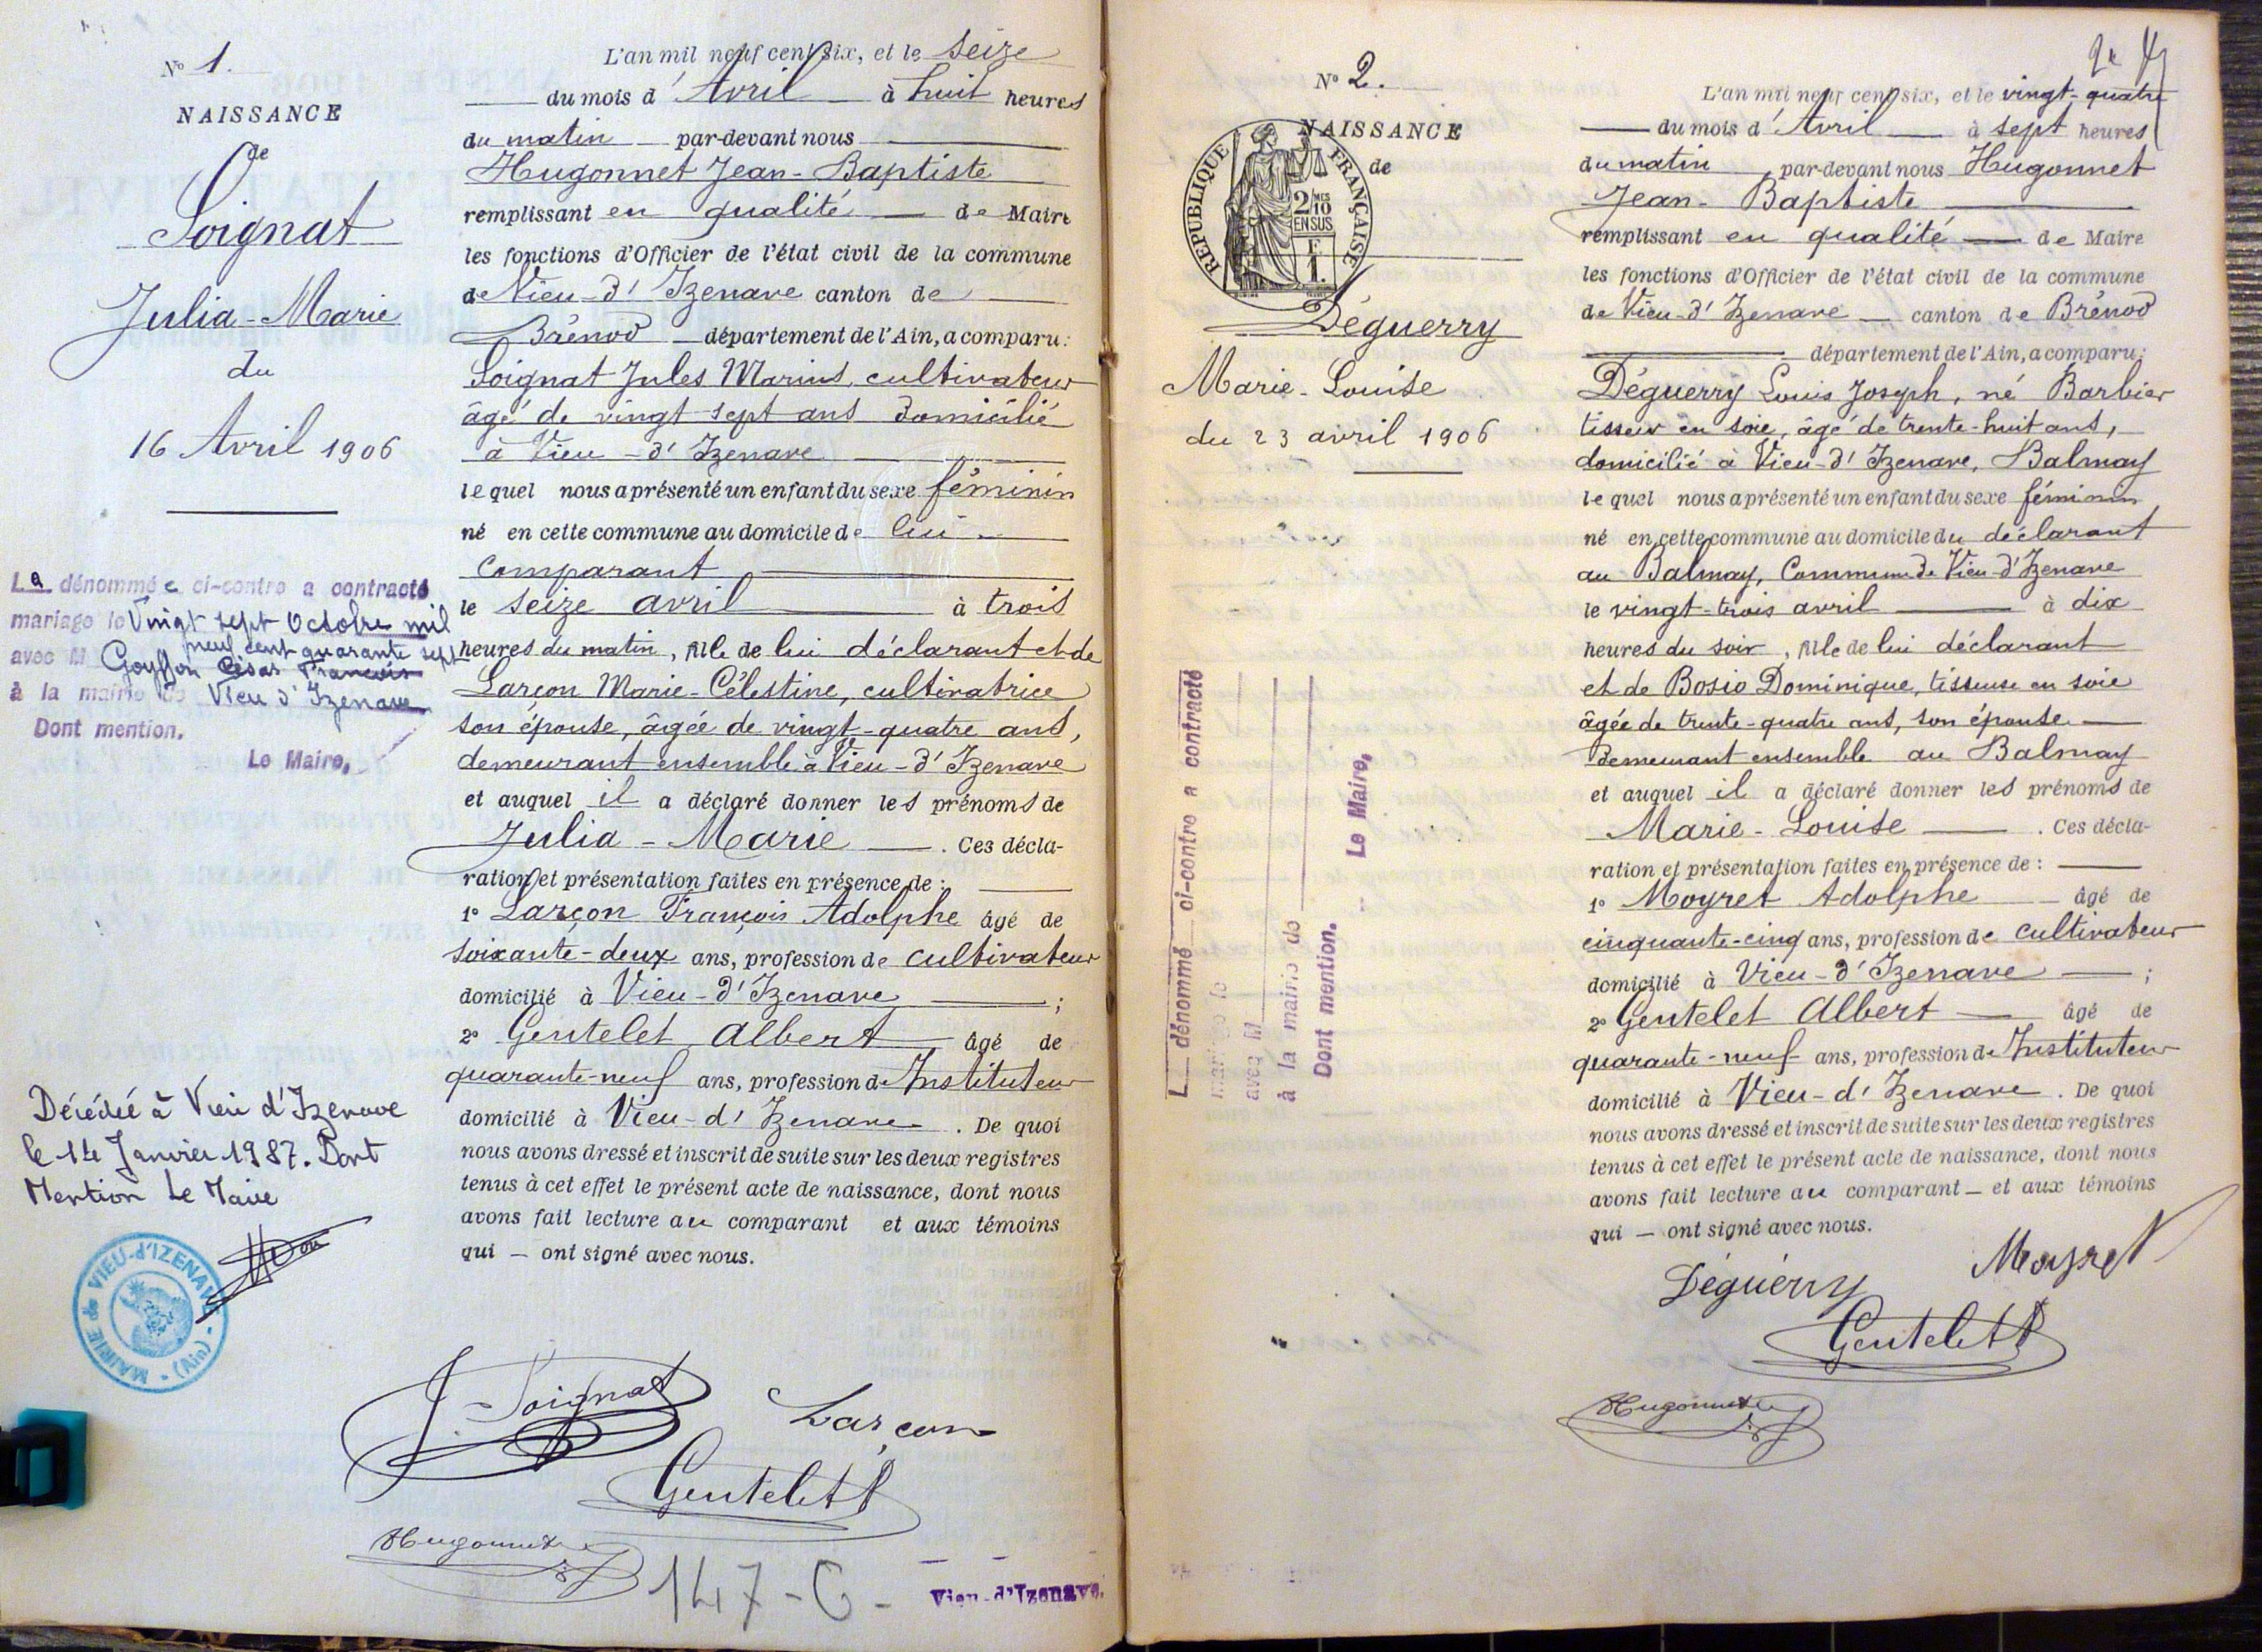 N° 1.
NAISSANCE
de
Soignat
Julia-Marie
du
16 Avril 1906
La dénommée ci-contre a contracté
mariage le Vingt sept Octobre mil
neuf cent quarante sept
avec M Goyffon César François
à la mairie de Vieu d'Izenave
Dont mention.
Le Maire,
Décédée à Vieu d'Izenave
le 14 Janvier 1987. Dont
Mention Le Maire
MAIRIE de VIEU-d'IZENAVE - (Ain) -
L'an mil neuf cent six, et le seize
du mois d'Avril à huit heures
du matin par-devant nous
Hugonnet Jean-Baptiste
remplissant en qualité de Maire
les fonctions d'Officier de l'état civil de la commune
de Vieu-d'Izenave canton de
Brénod département de l'Ain, a comparu:
Soignat Jules Marius, cultivateur
âgé de vingt sept ans domicilié
à Vieu-d'Izenave
lequel nous a présenté un enfant du sexe féminin
né en cette commune au domicile de lui
comparant
le seize avril à trois
heures du matin, fille de lui déclarant et de
Larçon Marie-Célestine, cultivatrice
son épouse, âgée de vingt-quatre ans,
demeurant ensemble à Vieu-d'Izenave
et auquel il a déclaré donner les prénoms de
Julia-Marie. Ces décla-
ration et présentation faites en présence de:
1° Larçon François Adolphe âgé de
soixante-deux ans, profession de cultivateur
domicilié à Vieu-d'Izenave;
2° Gentelet Albert âgé de
quarante-neuf ans, profession d'Instituteur
domicilié à Vieu-d'Izenave. De quoi
nous avons dressé et inscrit de suite sur les deux registres
tenus à cet effet le présent acte de naissance, dont nous
avons fait lecture au comparant et aux témoins
qui — ont signé avec nous.
J. Soignat
Larçon
Gentelet A
Hugonnet
147-C-
Vieu-d'Izenave.
N° 2.
NAISSANCE
de
REPUBLIQUE FRANÇAISE
2/10 MES
EN SUS
F
1.
Déguerry
Marie-Louise
du 23 avril 1906
L dénommé ci-contre a contracté
mariage le
avec M
à la mairie de
Dont mention.
Le Maire,
L'an mil neuf cent six, et le vingt-quatre
du mois d'Avril à sept heures
du matin par-devant nous Hugonnet
Jean-Baptiste
remplissant en qualité de Maire
les fonctions d'Officier de l'état civil de la commune
de Vieu-d'Izenave canton de Brénod
département de l'Ain, a comparu:
Déguerry Louis Joseph, né Barbier
tisseur en soie, âgé de trente-huit ans,
domicilié à Vieu-d'Izenave, Balmay
lequel nous a présenté un enfant du sexe féminin
né en cette commune au domicile du déclarant
au Balmay, Commune de Vieu-d'Izenave
le vingt-trois avril à dix
heures du soir, fille de lui déclarant
et de Bosio Dominique, tisseuse en soie
âgée de trente-quatre ans, son épouse
demeurant ensemble au Balmay
et auquel il a déclaré donner les prénoms de
Marie-Louise. Ces décla-
ration et présentation faites en présence de:
1° Moyret Adolphe âgé de
cinquante-cinq ans, profession de cultivateur
domicilié à Vieu-d'Izenave;
2° Gentelet Albert âgé de
quarante-neuf ans, profession d'Instituteur
domicilié à Vieu-d'Izenave. De quoi
nous avons dressé et inscrit de suite sur les deux registres
tenus à cet effet le présent acte de naissance, dont nous
avons fait lecture au comparant — et aux témoins
qui — ont signé avec nous.
Déguerry
Moyret
Gentelet A
Hugonnet